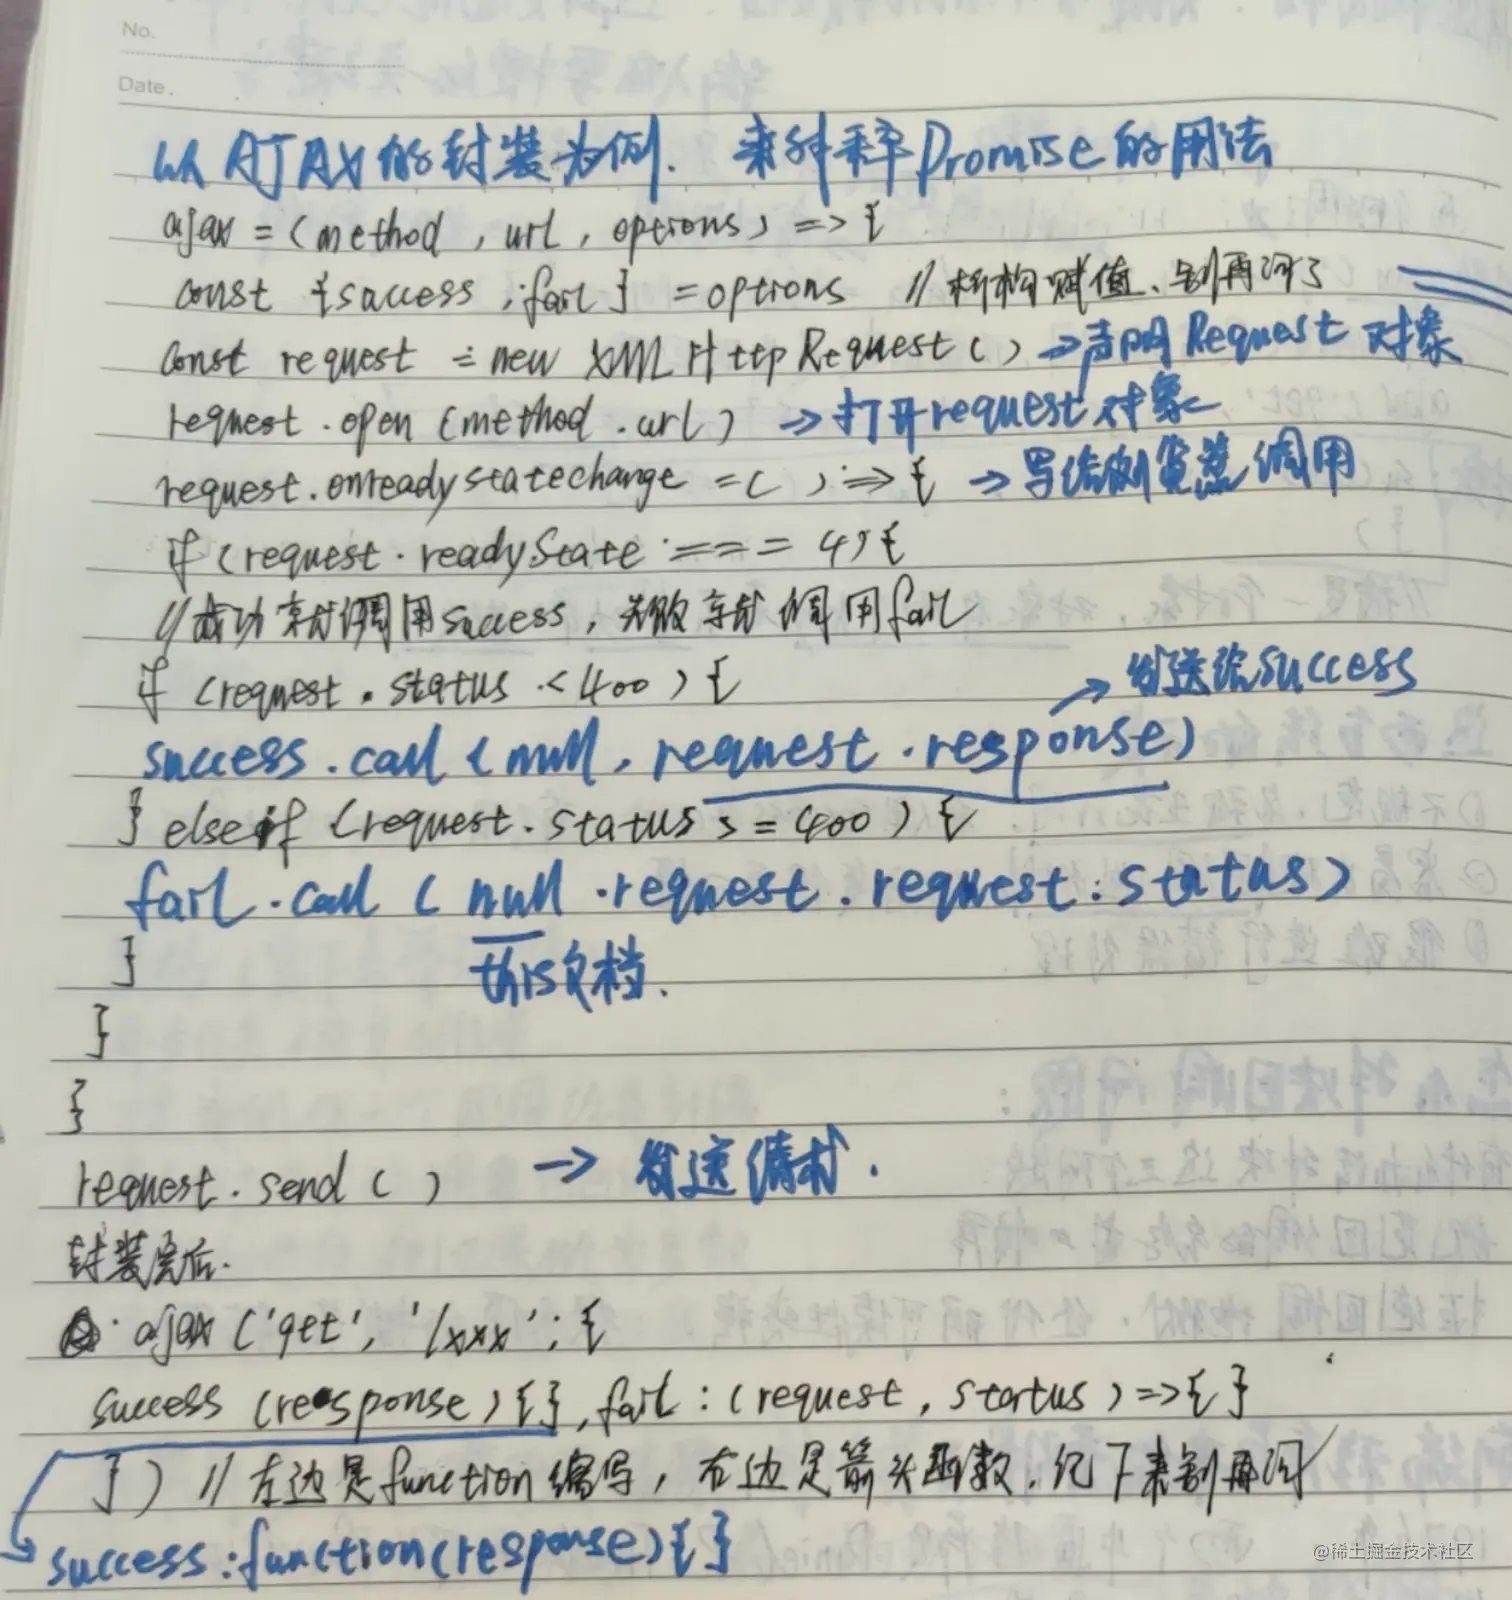 No.
Date.
以AJAX的封装为例. 来解释Promise的用法
ajax = (method , url , options) => {
const {success , fail} = options //析构赋值、别再问了
const request = new XMLHttpRequest() → 声明Request对象
request.open (method.url) → 打开request对象
request.onreadystatechange = ( ) => { → 写给浏览器调用
if (request.readyState === 4) {
//成功就调用success, 失败就调用fail
if (request.status < 400) { → 发送给success
success.call (null, request.response)
} else if (request.status >= 400) {
fail.call (null .request. request:status)
} this文档.
}
}
request.send ( ) → 发送请求.
封装完后.
ajax ('get', '/xxx'; {
success (response) { }, fail : (request, status) => { }
}) // 左边是function缩写, 右边是箭头函数. 记下来别再问
success : function(response) { }
@稀土掘金技术社区